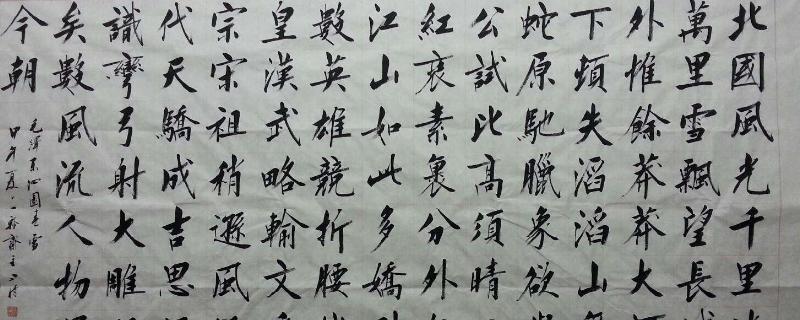 北國風光千里
萬里雪飄望長城
外惟餘莽莽大河
下頓失滔滔山
蛇原馳臘象欲
公試比高須晴
紅素裹分外
江山如此多嬌
數英雄競折腰
皇漢武略輸文
宗宋祖稍遜風
代天驕成吉思
識彎弓射大雕
矣數風流人物
今朝
毛澤東沁園春雪
甲午夏